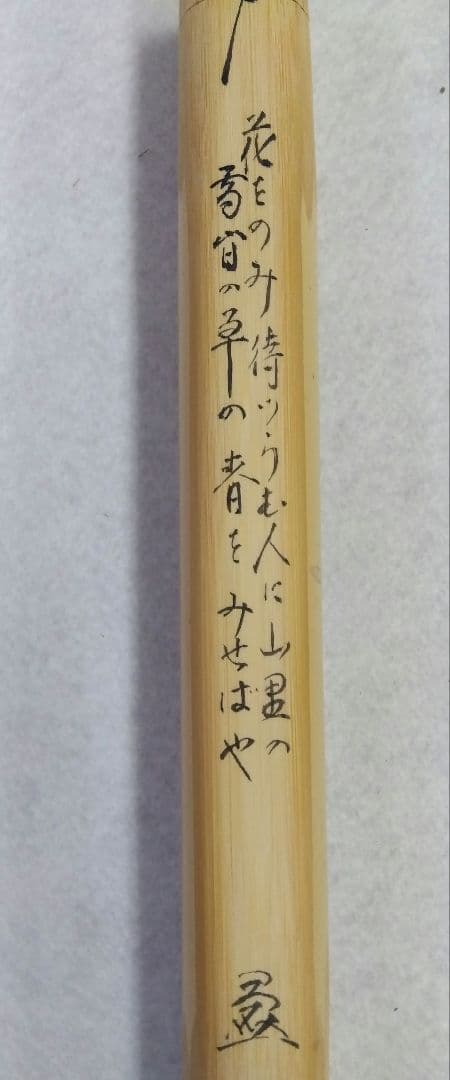 花をのみ待つらむ人に山里の
雪間の草の春をみせばや